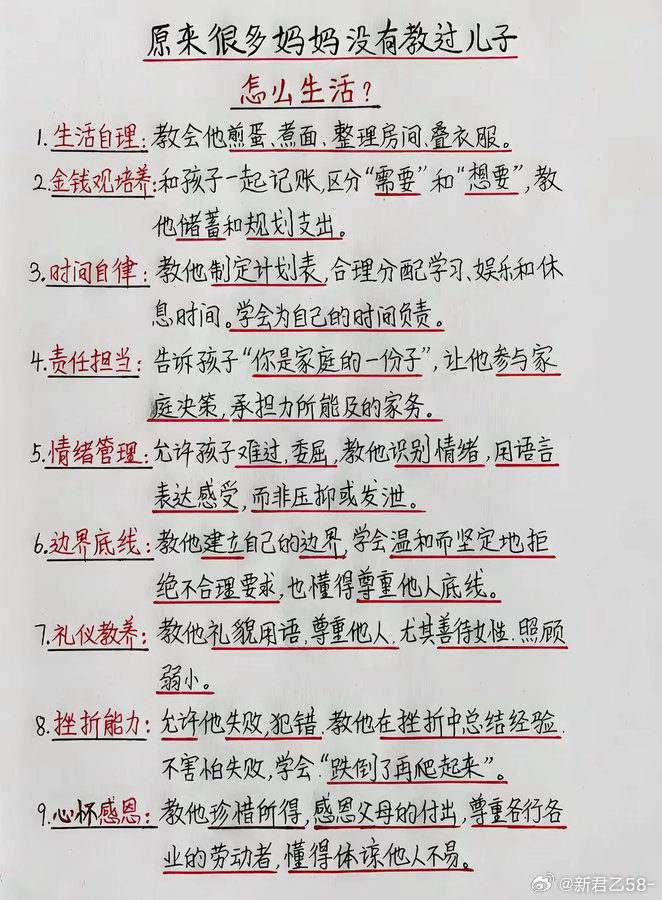 原来很多妈妈没有教过儿子
怎么生活？
1.生活自理：教会他煎蛋、煮面、整理房间、叠衣服。
2.金钱观培养：和孩子一起记账，区分“需要”和“想要”，教
他储蓄和规划支出。
3.时间自律：教他制定计划表，合理分配学习、娱乐和休
息时间。学会为自己的时间负责。
4.责任担当：告诉孩子“你是家庭的一份子”，让他参与家
庭决策，承担力所能及的家务。
5.情绪管理：允许孩子难过，委屈，教他识别情绪，用语言
表达感受，而非压抑或发泄。
6.边界底线：教他建立自己的边界，学会温和而坚定地拒
绝不合理要求，也懂得尊重他人底线。
7.礼仪教养：教他礼貌用语，尊重他人，尤其善待女性.照顾
弱小。
8.挫折能力：允许他失败，犯错.教他在挫折中总结经验.
不害怕失败，学会“跌倒了再爬起来”。
9.心怀感恩：教他珍惜所得，感恩父母的付出，尊重各行各
业的劳动者，懂得体谅他人不易。
@新君乙58-